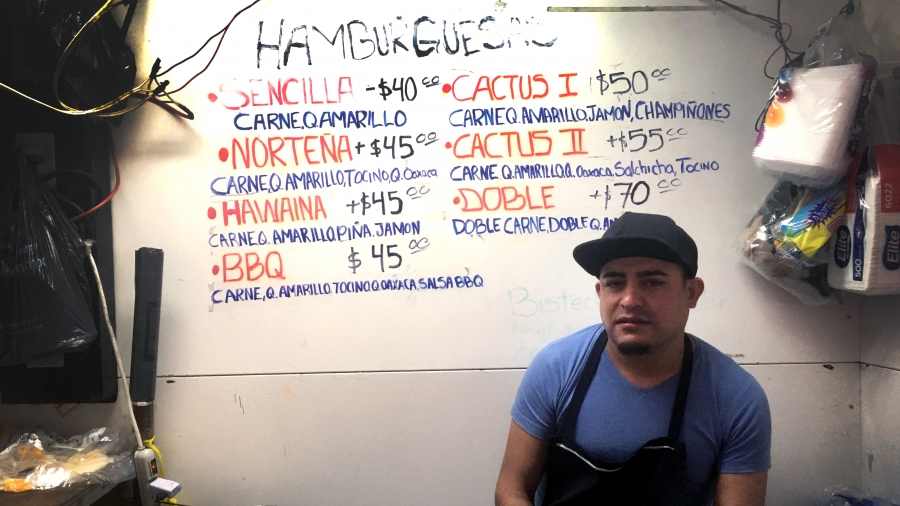 HAMBURGUESAS
•SENCILLA -$40⁰⁰
CARNE,Q.AMARILLO
•NORTEÑA +$45⁰⁰
CARNE,Q.AMARILLO,TOCINO,Q.Oaxaca
•HAWAINA +$45⁰⁰
CARNE.Q.AMARILLO.PIÑA.JAMON
•BBQ $45⁰⁰
CARNE,Q.AMARILLO.TOCINO.Q.OAXACA,SALSA BBQ
•CACTUS I $50⁰⁰
CARNE Q.AMARILLO,JAMON,CHAMPIÑONES
•CACTUS II +$55⁰⁰
CARNE Q.AMARILLO,Q.Oaxaca,Salchicha,Tocino
•DOBLE +$70⁰⁰
DOBLE CARNE,DOBLE Q.
Elite
500
Elite
6022